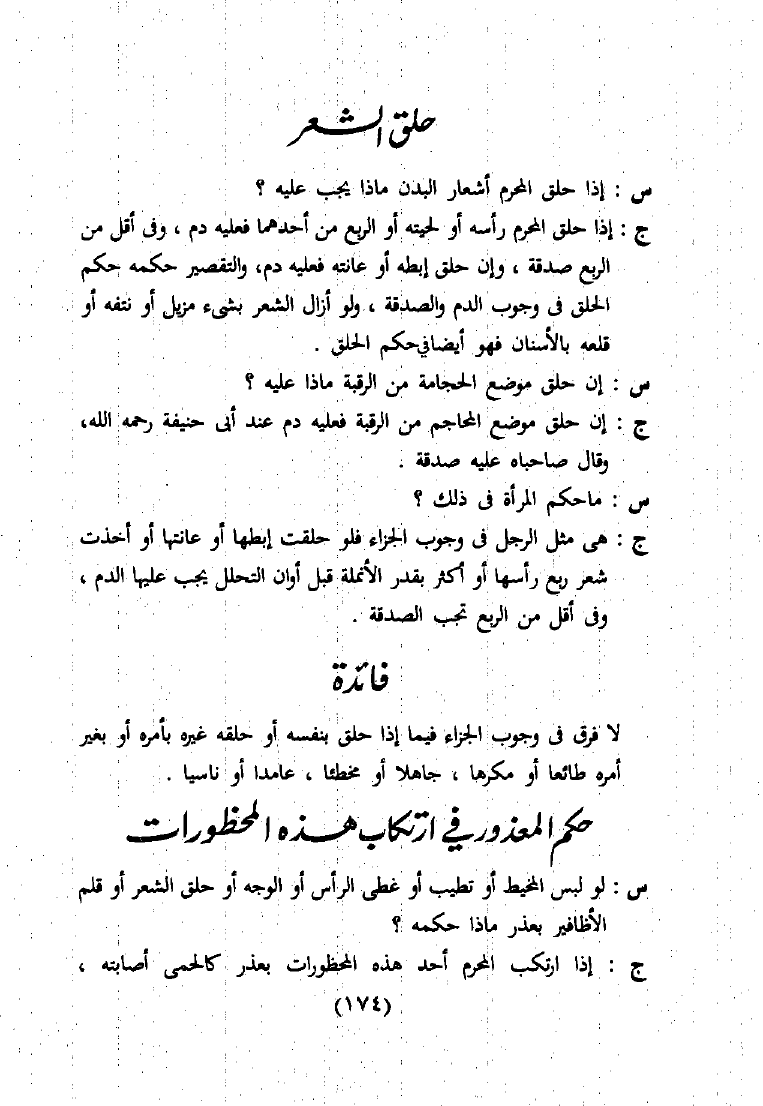 حلق الشعر
س : إذا حلق المحرم أشعار البدن ماذا يجب عليه ؟
ج : إذا حلق المحرم رأسه أو لحيته أو الربع من أحدهما فعليه دم ، وفى أقل من
الربع صدقة ، وإن حلق إبطه أو عانته فعليه دم، والتقصير حكمه حكم
الحلق فى وجوب الدم والصدقة ، ولو أزال الشعر بشىء مزيل أو نتفه أو
قلعه بالأسنان فهو أيضا في حكم الحلق .
س : إن حلق موضع الحجامة من الرقبة ماذا عليه ؟
ج : إن حلق موضع المحاجم من الرقبة فعليه دم عند أبى حنيفة رحمه الله،
وقال صاحباه عليه صدقة .
س : ماحكم المرأة فى ذلك ؟
ج : هى مثل الرجل فى وجوب الجزاء فلو حلقت إبطها أو عانتها أو أخذت
شعر ربع رأسها أو أكثر بقدر الأنملة قبل أوان التحلل يجب عليها الدم ،
وفى أقل من الربع تجب الصدقة .
فائدة
لا فرق فى وجوب الجزاء فيما إذا حلق بنفسه أو حلقه غيره بأمره أو بغير
أمره طائعا أو مكرها ، جاهلا أو مخطئا ، عامدا أو ناسيا .
حكم المعذور في ارتكاب هذه المحظورات
س : لو لبس المخيط أو تطيب أو غطى الرأس أو الوجه أو حلق الشعر أو قلم
الأظافير بعذر ماذا حكمه ؟
ج : إذا ارتكب المحرم أحد هذه المحظورات بعذر كالحمى أصابته ،
(١٧٤)